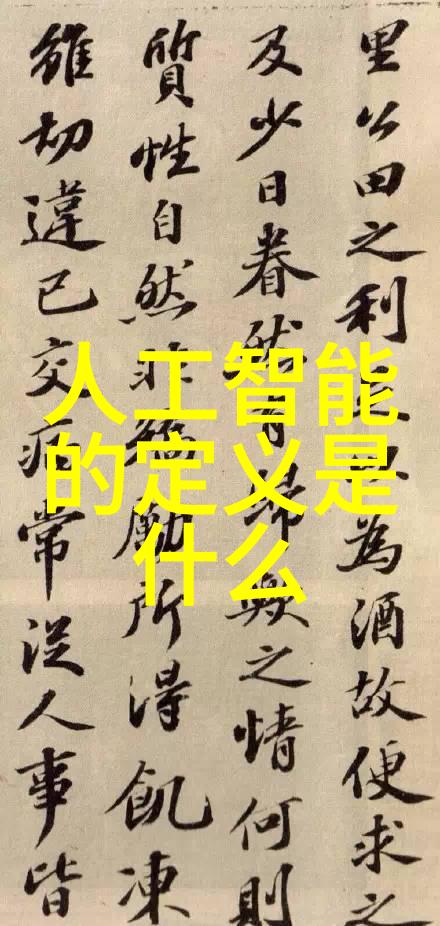 人工智能
的定义是
什么
里公田之利足以為酒故便求之
及少日眷然有歸歟之情何則
質性自然非矯勵所得飢凍
雖切違已交病常從人事皆